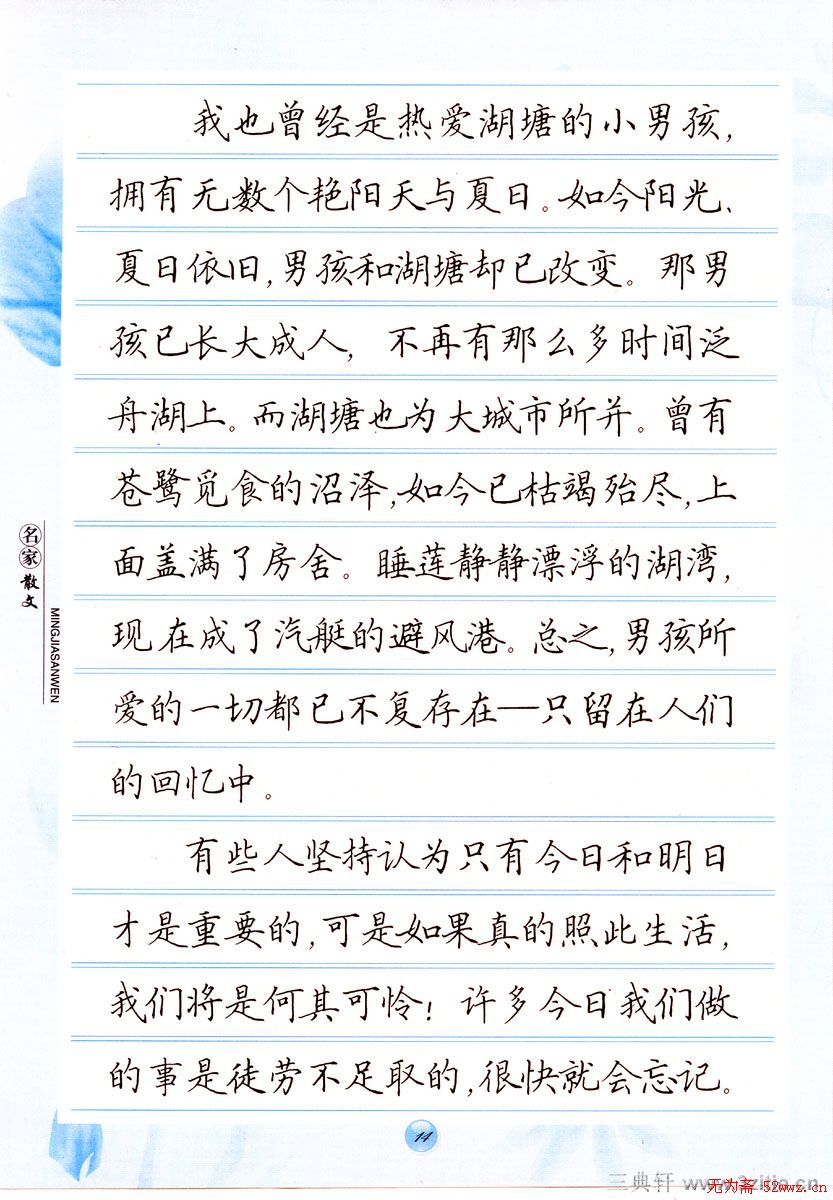 我也曾经是热爱湖塘的小男孩，
拥有无数个艳阳天与夏日。如今阳光、
夏日依旧，男孩和湖塘却已改变。那男
孩已长大成人，不再有那么多时间泛
舟湖上。而湖塘也为大城市所并。曾有
苍鹭觅食的沼泽，如今已枯竭殆尽，上
面盖满了房舍。睡莲静静漂浮的湖湾，
现在成了汽艇的避风港。总之，男孩所
爱的一切都已不复存在—只留在人们
的回忆中。
有些人坚持认为只有今日和明日
才是重要的，可是如果真的照此生活，
我们将是何其可怜！许多今日我们做
的事是徒劳不足取的，很快就会忘记。
名家散文
MINGJIASANWEN
14
三典轩
无为斋·52wwz.cn